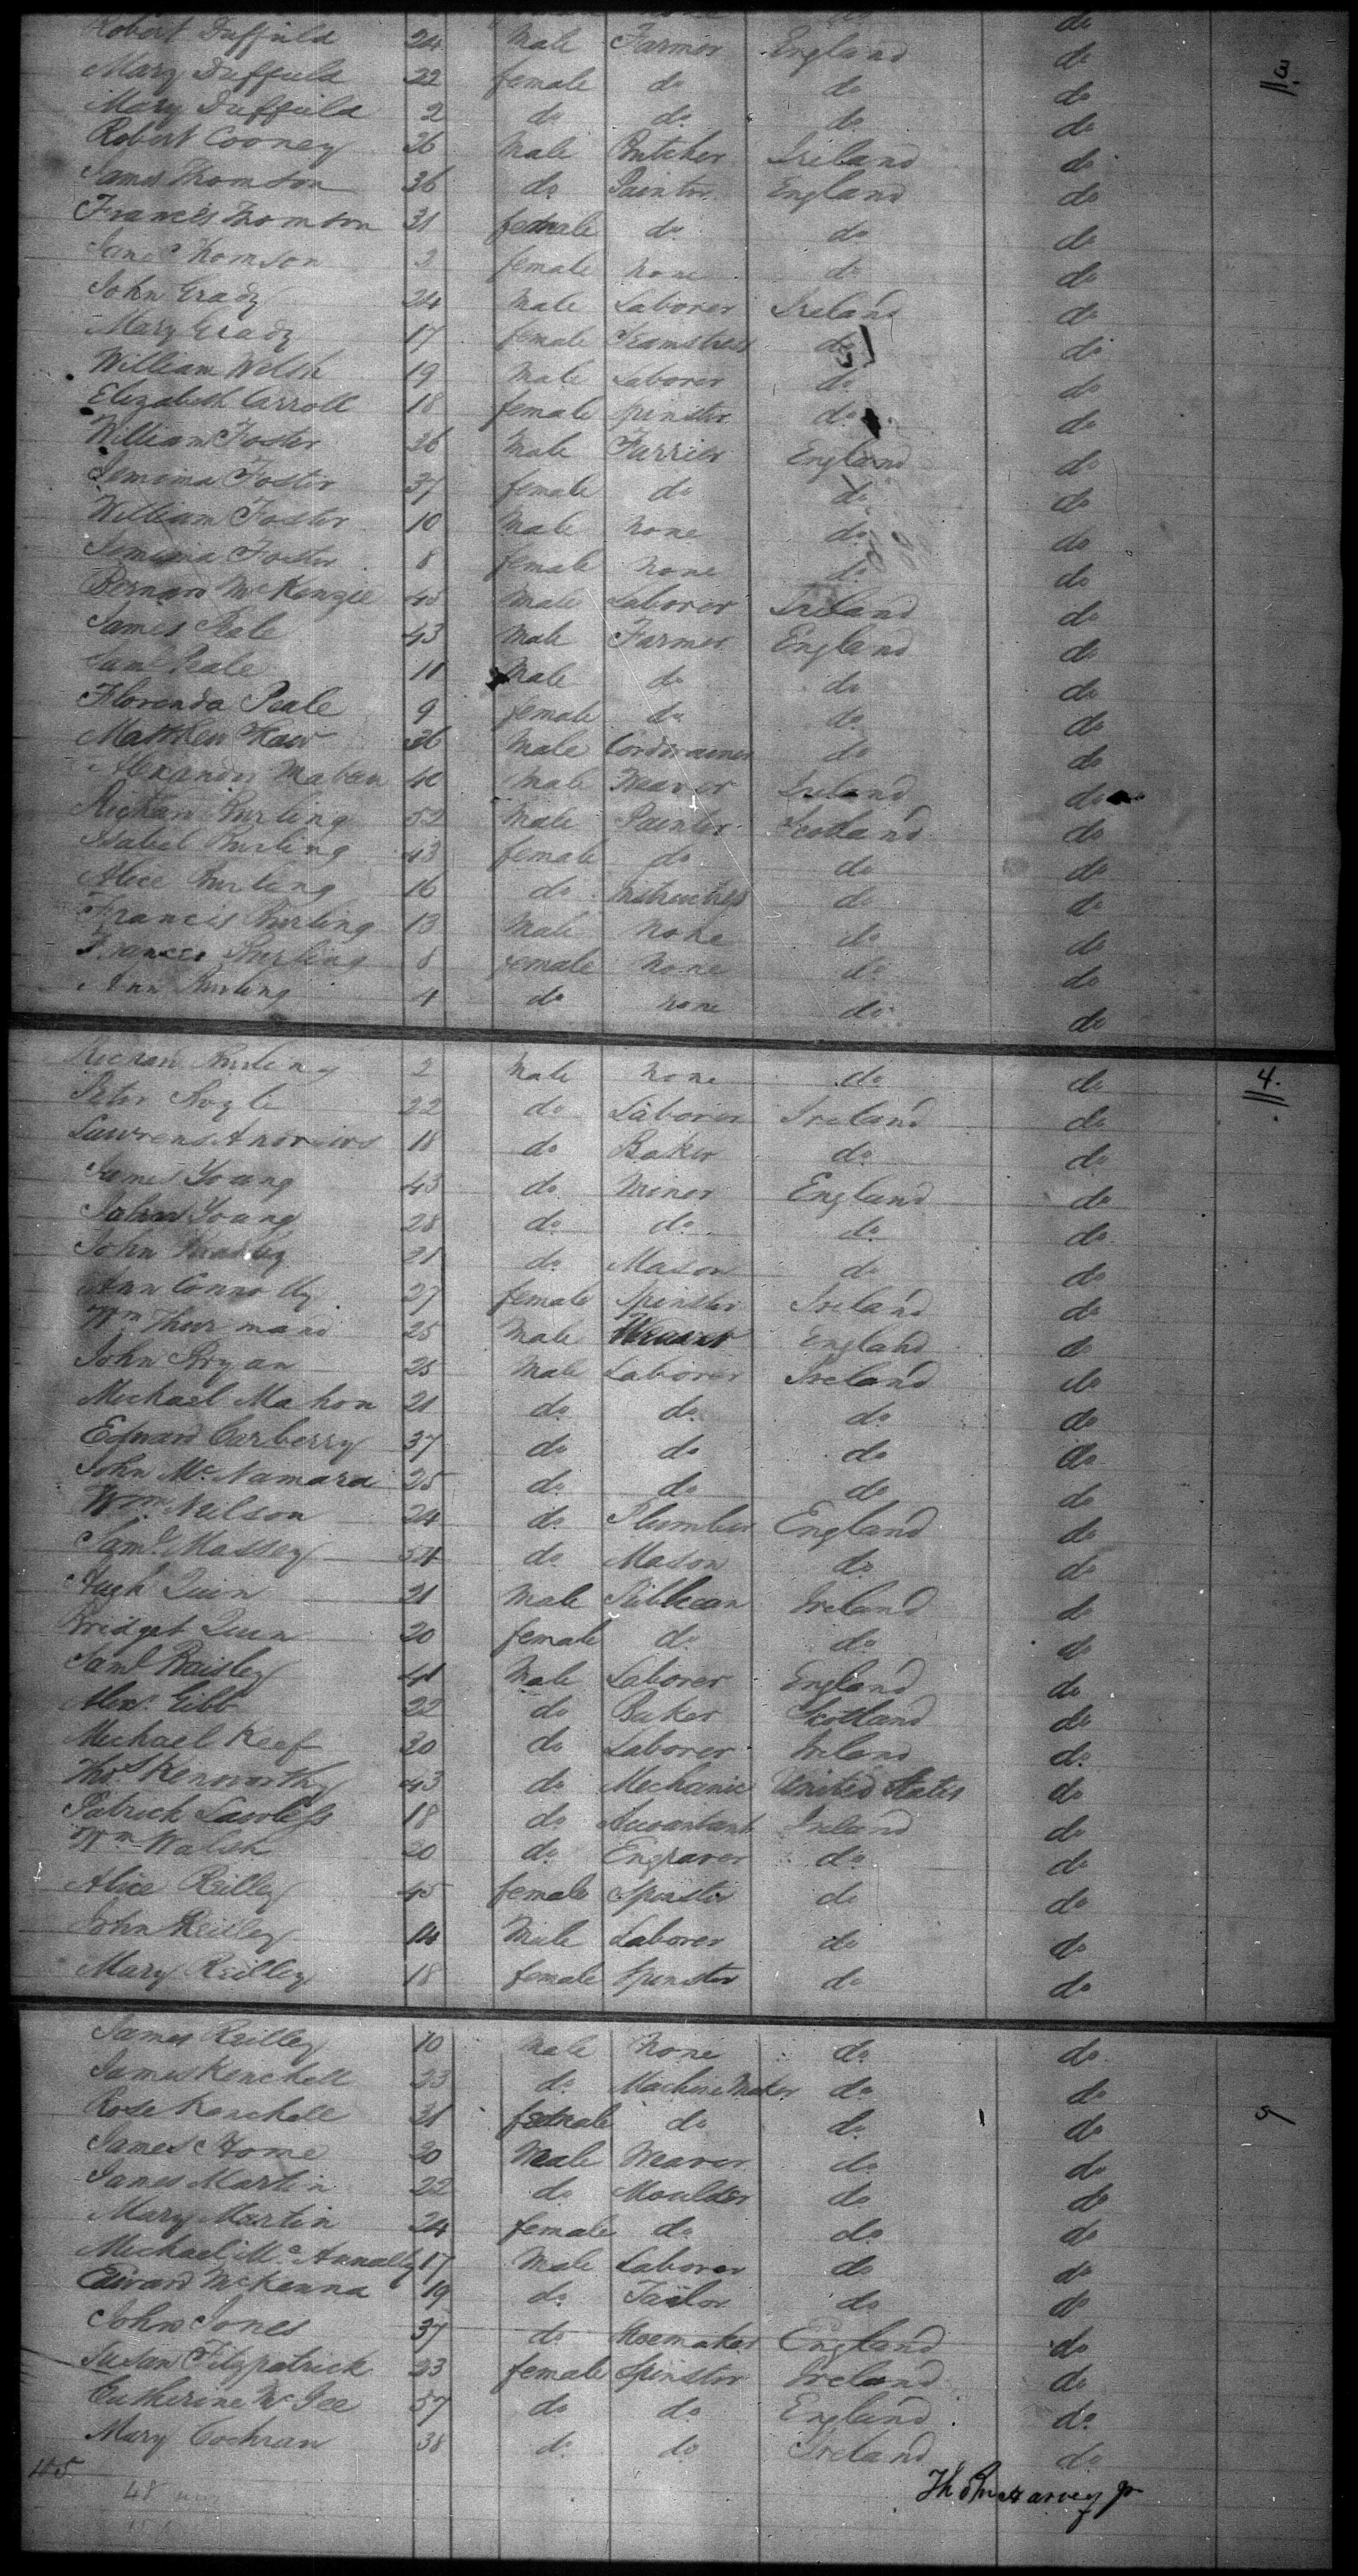 do
Robert Duffield 24 Male Farmer England do
3
Mary Duffield 22 female do do do
Mary Duffield 2 do do do do
Robert Cooney 36 Male Butcher Ireland do
James Thomson 36 do Painter England do
Francis Thomson 31 female do do do
Jane Thomson 2 female none do do
John Grady 24 Male Laborer Ireland do
Mary Grady 17 female Seamstress do do
William Welsh 19 Male Laborer do do
Elizabeth Carroll 18 female spinster do do
William Foster 36 Male Furrier England do
Jemima Foster 37 female do do do
William Foster 10 Male none do do
Jemima Foster 8 female none do do
Bernard McKenzie 40 Male Laborer Ireland do
James Peale 43 Male Farmer England do
Saml Peale 11 Male do do do
Florenda Peale 9 female do do do
Matthew Haw 36 Male Cordwainer do do
Alexander 40 Male Weaver Ireland do
Richard 52 Male Painter Scotland do
Isabel 43 female do do do
Alice 16 do do do
Francis 13 Male None do do
Frances 8 female None do do
Ann 4 do none do do
Richard 2 Male None do do
4.
Peter 22 do Laborer Ireland do
Lawrens Andrews 18 do Baker do do
James Young 43 do Miner England do
John Young 28 do do do do
John 21 do Mason do do
Ann Connolly 27 female Spinster Ireland do
Wm Thurmand 25 Male England do
John Bryan 25 Male Laborer Ireland do
Michael Mahon 21 do do do do
Edward Carberry 37 do do do do
John McNamara 25 do do do do
Wm Nelson 24 do Plumber England do
Saml Massey 54 do Mason do do
Hugh Quin 21 Male Publican Ireland do
Bridget Quin 20 female do do do
Saml Baisley 41 Male Laborer England do
Alexr Gibb 22 do Baker Scotland do
Michael Keef 30 do Laborer Ireland do
Thos Kenworthy 43 do Mechanic United States do
Patrick Lawless 18 do Accountant Ireland do
Wm Walsh 20 do Engraver do do
Alice Reilley 45 female Spinster do do
John Reilley 14 Male Laborer do do
Mary Reilley 18 female Spinster do do
James Reilley 10 Male None do do
James Kenchell 23 do Machine Maker do do
5
Rose Kenchell 31 female do do do
James Horne 20 Male Weaver do do
James Martin 22 do Moulder do do
Mary Martin 24 female do do do
Michael McAnnally 17 Male Laborer do do
Edward McKenna 19 do Tailor do do
John Jones 37 do Shoemaker England do
Susan Fitzpatrick 23 female Spinster Ireland do
Catherine McGee 57 do do England do
Mary Cochran 38 do do Ireland do
48